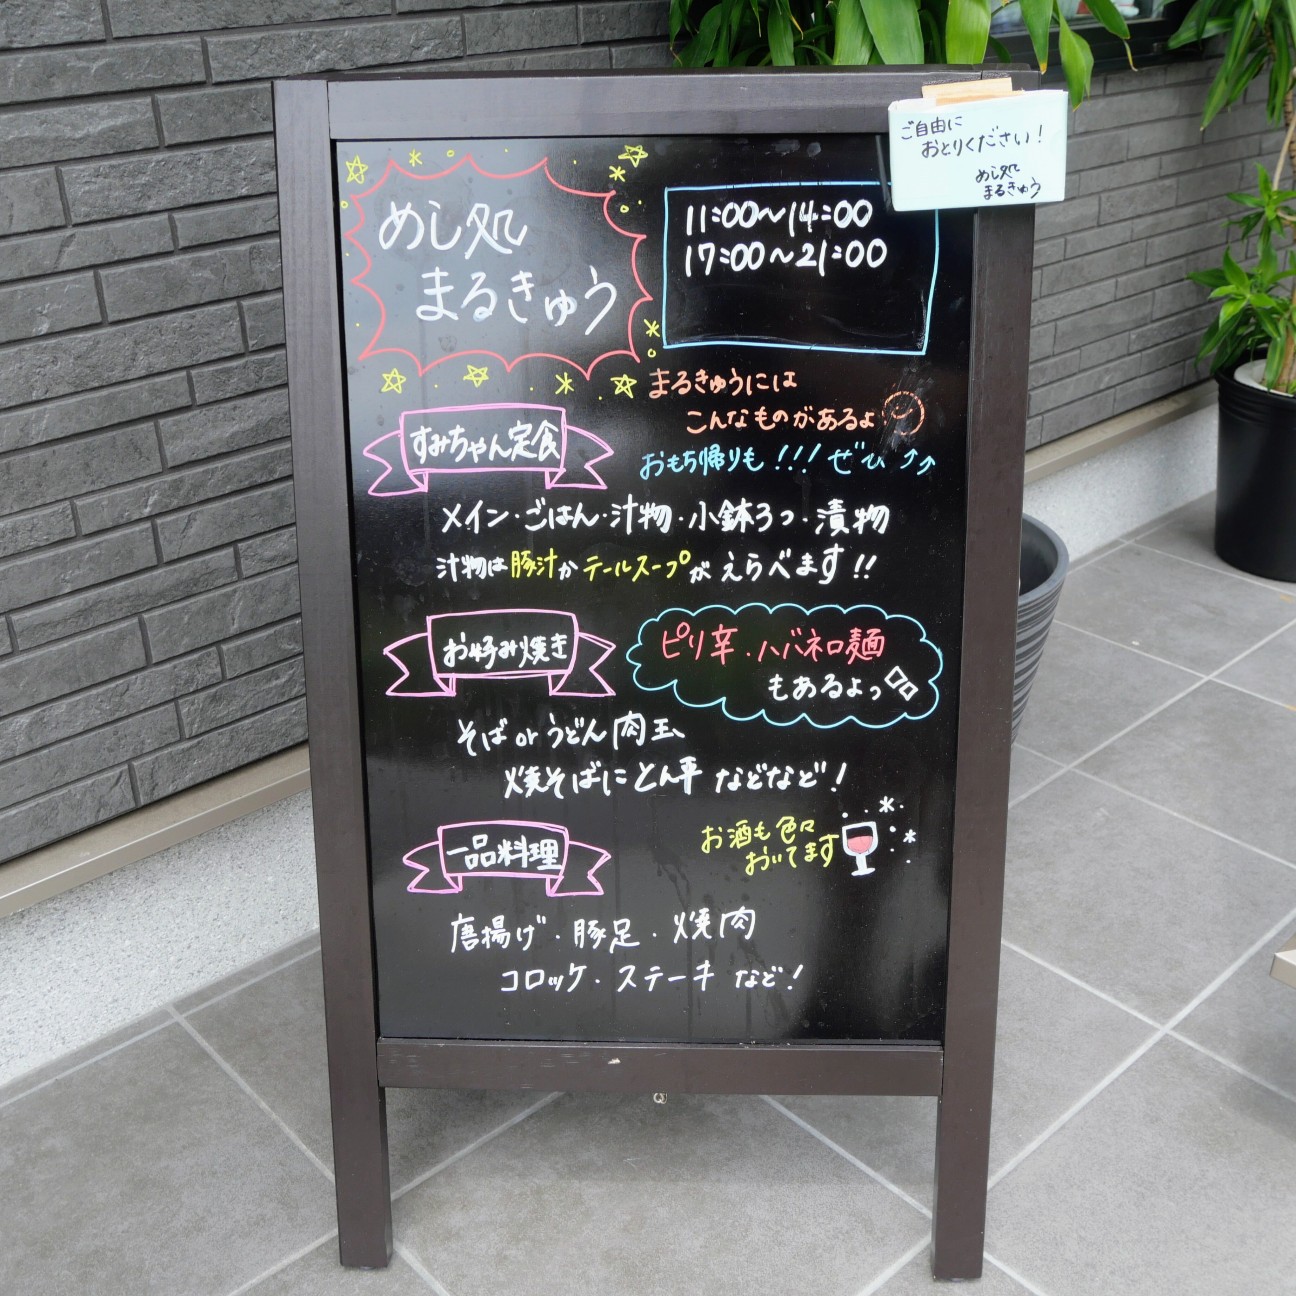 ご自由に
おとりください！
めし処
まるきゅう
めし処
まるきゅう
11:00〜14:00
17:00〜21:00
まるきゅうには
こんなものがあるよ
おもち帰りも!!!ぜひ
すみちゃん定食
メイン・ごはん・汁物・小鉢3つ・漬物
汁物は豚汁かテールスープがえらべます!!
お好み焼き
ピリ辛・ハバネロ麺
もあるよっ
そばorうどん肉玉、
焼そばにとん平などなど！
一品料理
お酒も色々
おいてます
唐揚げ・豚足・焼肉
コロッケ・ステーキなど！